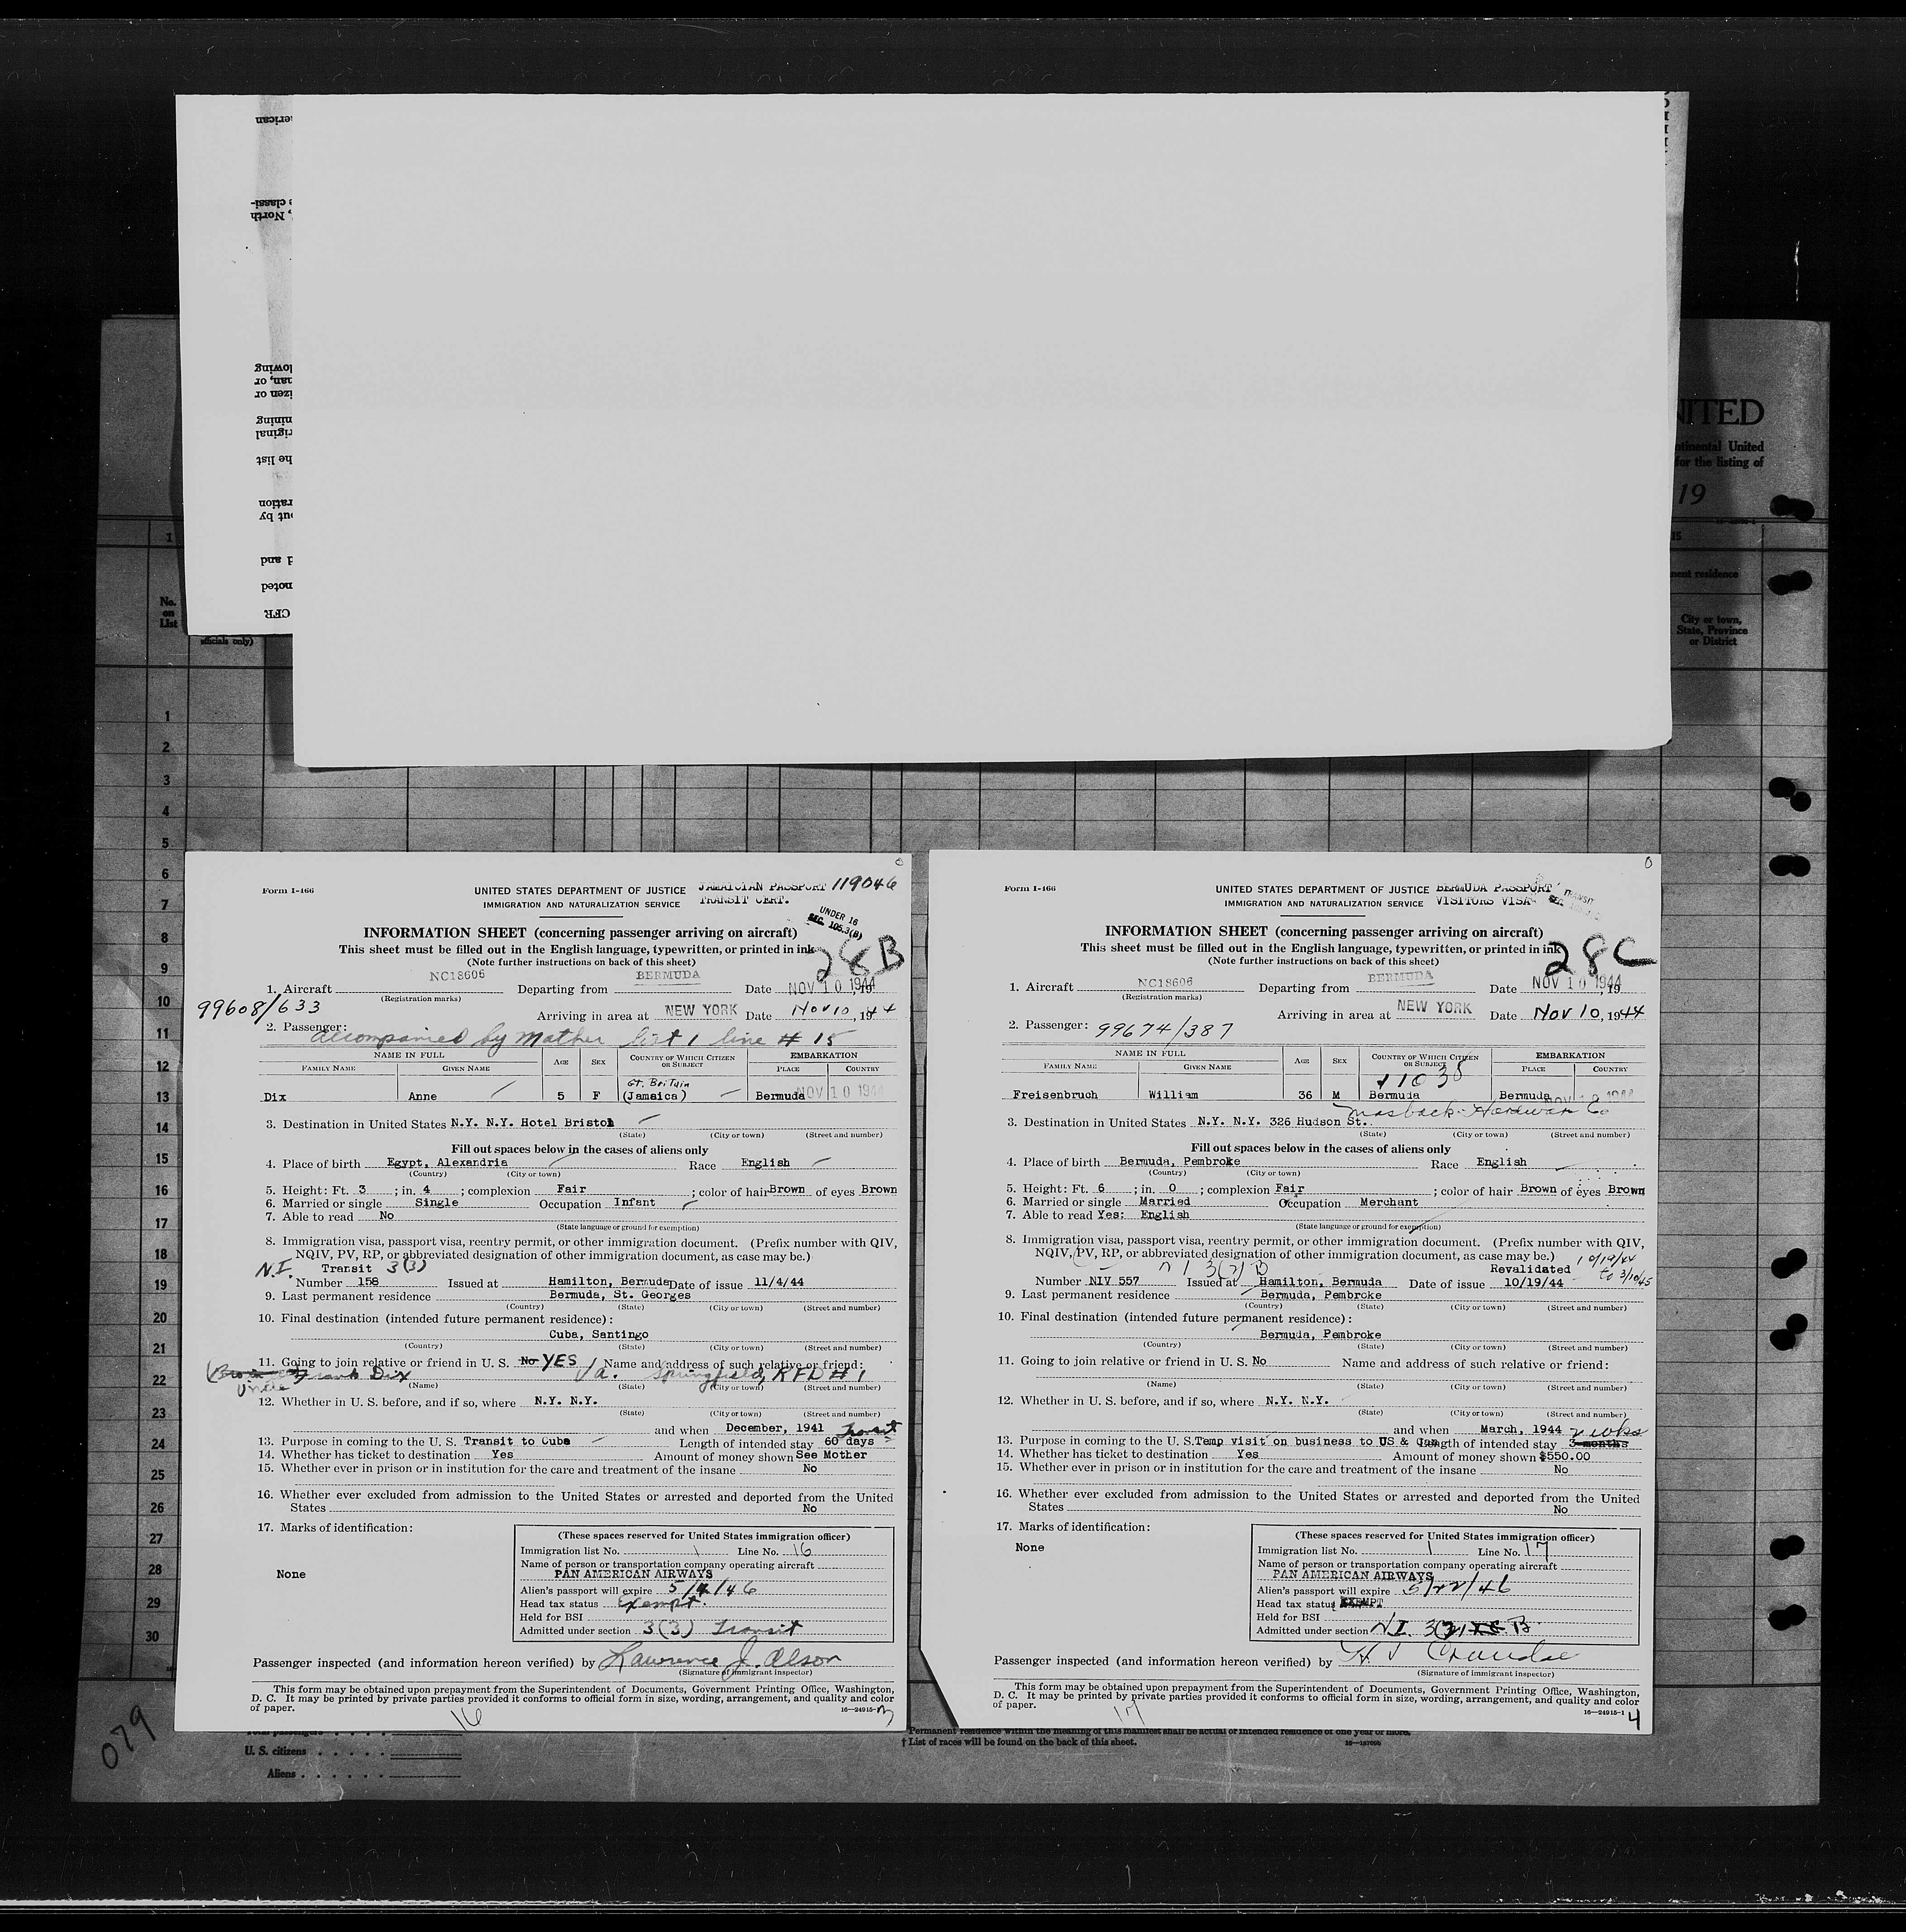 erican
e classi-
, North
lowing
nan, or
izen or
mining
riginal
he list
ration
out by
d and
noted
CFR
NITED
ntinental United
for the listing of
19
1
15
nent residence
No.
on
List
officials only)
City or town,
State, Province
or District
1
2
3
4
5
6
7
8
9
10
11
12
13
14
15
16
17
18
19
20
21
22
23
24
25
26
27
28
29
30
Form I-466
UNITED STATES DEPARTMENT OF JUSTICE JAMAICIAN PASSPORT 119046
IMMIGRATION AND NATURALIZATION SERVICE TRANSIT CERT.
UNDER 16
SEC. 105.3(B)
INFORMATION SHEET (concerning passenger arriving on aircraft)
This sheet must be filled out in the English language, typewritten, or printed in ink
(Note further instructions on back of this sheet)
28B
1. Aircraft NC18606 Departing from BERMUDA Date NOV 10 1944, 19
(Registration marks)
99608/633
Arriving in area at NEW YORK Date Nov 10, 1944
2. Passenger:
accompanied by mother list 1 line # 15
NAME IN FULL AGE SEX COUNTRY OF WHICH CITIZEN OR SUBJECT EMBARKATION
FAMILY NAME GIVEN NAME PLACE COUNTRY
Dix Anne 5 F Gt. Britain (Jamaica) Bermuda NOV 10 1944
3. Destination in United States N.Y. N.Y. Hotel Bristol
(State) (City or town) (Street and number)
Fill out spaces below in the cases of aliens only
4. Place of birth Egypt, Alexandria Race English
(Country) (City or town)
5. Height: Ft. 3 ; in. 4 ; complexion Fair ; color of hair Brown of eyes Brown
6. Married or single Single Occupation Infant
7. Able to read No
(State language or ground for exemption)
8. Immigration visa, passport visa, reentry permit, or other immigration document. (Prefix number with QIV,
NQIV, PV, RP, or abbreviated designation of other immigration document, as case may be.)
N.I. Transit 3(3)
Number 158 Issued at Hamilton, Bermuda Date of issue 11/4/44
9. Last permanent residence Bermuda, St. Georges
(Country) (State) (City or town) (Street and number)
10. Final destination (intended future permanent residence):
Cuba, Santingo
(Country) (State) (City or town) (Street and number)
11. Going to join relative or friend in U. S. No YES Name and address of such relative or friend:
Uncle Frank Dix Va. Springfield, RFD # 1
(Name) (State) (City or town) (Street and number)
12. Whether in U. S. before, and if so, where N.Y. N.Y.
(State) (City or town) (Street and number)
and when December, 1941
Transit
13. Purpose in coming to the U. S. Transit to Cuba Length of intended stay 60 days
14. Whether has ticket to destination Yes Amount of money shown See Mother
15. Whether ever in prison or in institution for the care and treatment of the insane No
16. Whether ever excluded from admission to the United States or arrested and deported from the United
States No
17. Marks of identification:
None
(These spaces reserved for United States immigration officer)
Immigration list No. 1 Line No. 16
Name of person or transportation company operating aircraft
PAN AMERICAN AIRWAYS
Alien's passport will expire 5/4/46
Head tax status Exempt.
Held for BSI
Admitted under section 3(3) Transit
Passenger inspected (and information hereon verified) by Lawrence J. Olson
(Signature of immigrant inspector)
This form may be obtained upon prepayment from the Superintendent of Documents, Government Printing Office, Washington,
D. C. It may be printed by private parties provided it conforms to official form in size, wording, arrangement, and quality and color
of paper.
16
16—24915-1
3
Form I-466
UNITED STATES DEPARTMENT OF JUSTICE BERMUDA PASSPORT
IMMIGRATION AND NATURALIZATION SERVICE VISITORS VISA
TRANSIT
INFORMATION SHEET (concerning passenger arriving on aircraft)
This sheet must be filled out in the English language, typewritten, or printed in ink
(Note further instructions on back of this sheet)
28C
1. Aircraft NC18606 Departing from BERMUDA Date NOV 10 1944, 19
(Registration marks)
Arriving in area at NEW YORK Date Nov 10, 1944
2. Passenger: 99674/387
NAME IN FULL AGE SEX COUNTRY OF WHICH CITIZEN OR SUBJECT EMBARKATION
FAMILY NAME GIVEN NAME PLACE COUNTRY
11038
Freisenbruch William 36 M Bermuda Bermuda NOV 10 1944
Masback Hardware Co
3. Destination in United States N.Y. N.Y. 326 Hudson St.
(State) (City or town) (Street and number)
Fill out spaces below in the cases of aliens only
4. Place of birth Bermuda, Pembroke Race English
(Country) (City or town)
5. Height: Ft. 6 ; in. 0 ; complexion Fair ; color of hair Brown of eyes Brown
6. Married or single Married Occupation Merchant
7. Able to read Yes: English
(State language or ground for exemption)
8. Immigration visa, passport visa, reentry permit, or other immigration document. (Prefix number with QIV,
NQIV, PV, RP, or abbreviated designation of other immigration document, as case may be.)
N I 3(2) B Revalidated 10/19/44 to 3/10/45
Number NIV 557 Issued at Hamilton, Bermuda Date of issue 10/19/44
9. Last permanent residence Bermuda, Pembroke
(Country) (State) (City or town) (Street and number)
10. Final destination (intended future permanent residence):
Bermuda, Pembroke
(Country) (State) (City or town) (Street and number)
11. Going to join relative or friend in U. S. No Name and address of such relative or friend:
(Name) (State) (City or town) (Street and number)
12. Whether in U. S. before, and if so, where N.Y. N.Y.
(State) (City or town) (Street and number)
and when March, 1944
2 wks
13. Purpose in coming to the U. S. Temp visit on business to US & Can Length of intended stay 3 months
14. Whether has ticket to destination Yes Amount of money shown $550.00
15. Whether ever in prison or in institution for the care and treatment of the insane No
16. Whether ever excluded from admission to the United States or arrested and deported from the United
States No
17. Marks of identification:
None
(These spaces reserved for United States immigration officer)
Immigration list No. 1 Line No. 17
Name of person or transportation company operating aircraft
PAN AMERICAN AIRWAYS
Alien's passport will expire 5/22/46
Head tax status EXEMPT
Held for BSI
Admitted under section N.I. 3(2) B
Passenger inspected (and information hereon verified) by
(Signature of immigrant inspector)
This form may be obtained upon prepayment from the Superintendent of Documents, Government Printing Office, Washington,
D. C. It may be printed by private parties provided it conforms to official form in size, wording, arrangement, and quality and color
of paper.
17
16—24915-1
4
079
Total passengers
U. S. citizens
Aliens
Permanent residence within the meaning of this manifest shall be actual or intended residence of one year or more.
† List of races will be found on the back of this sheet.